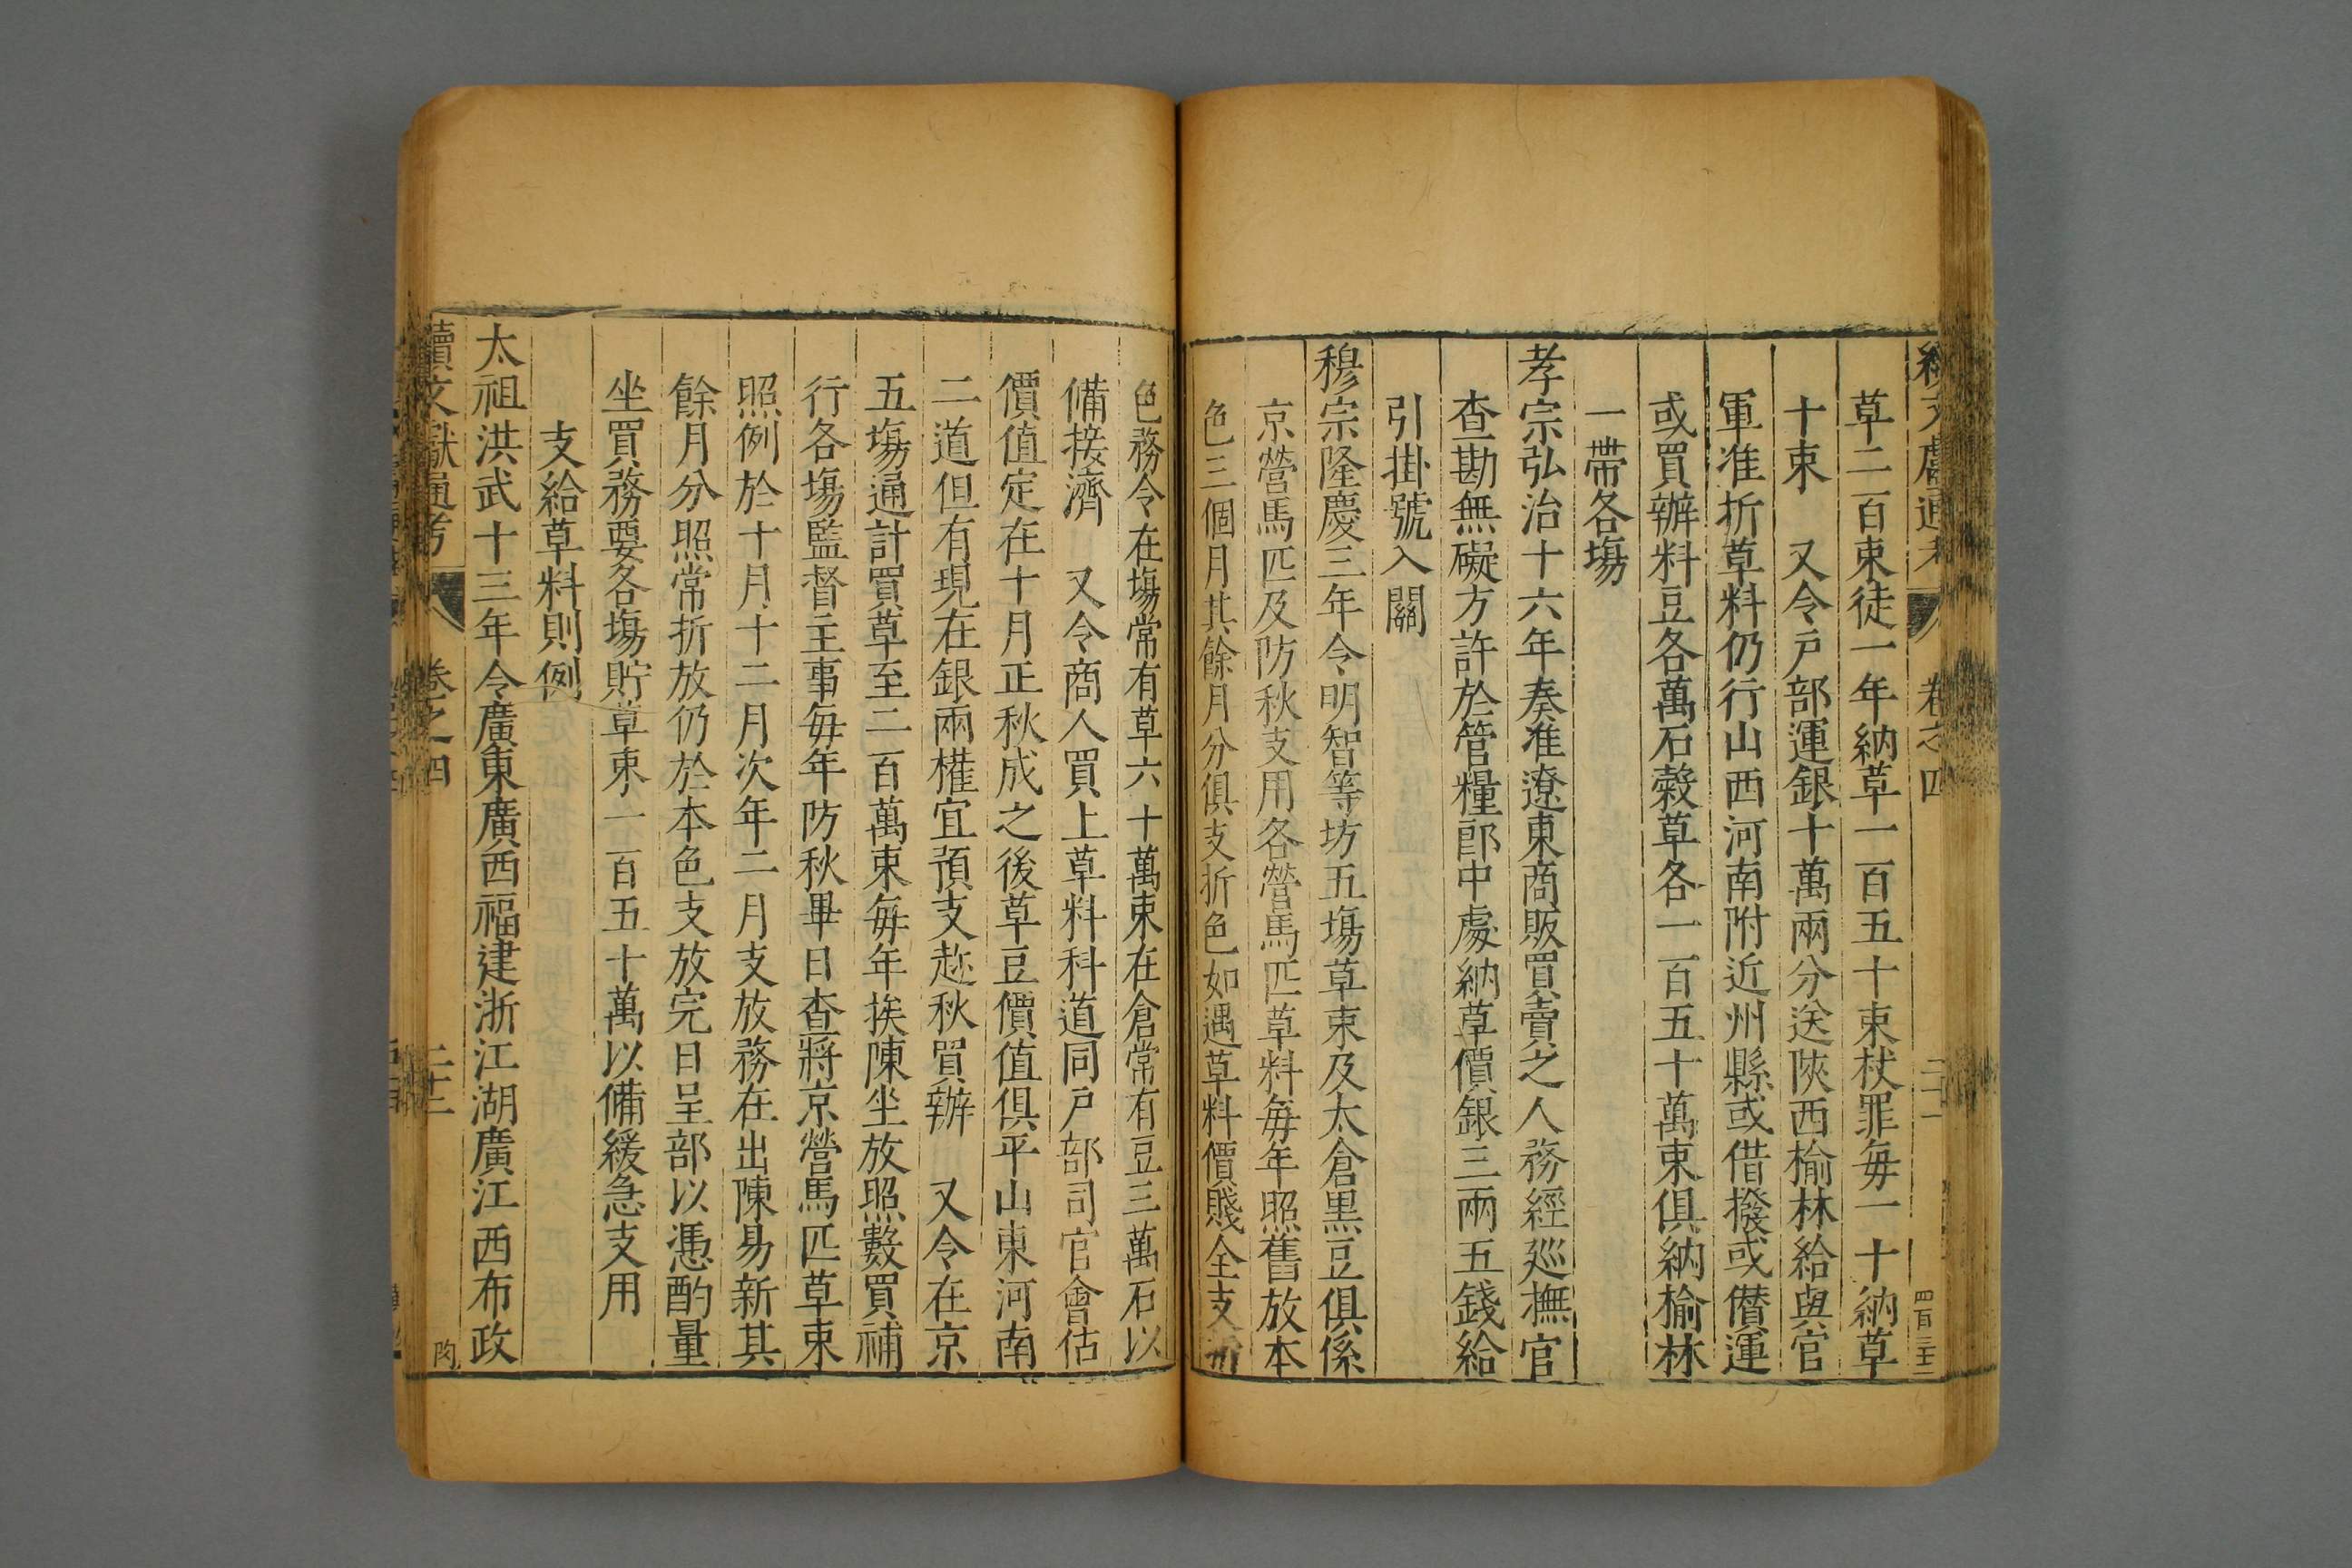 續文獻通考 卷之四 二十一 四百三十二
草二百束徒一年納草一百五十束杖罪每一十納草
十束 又令戶部運銀十萬兩分送陝西榆林給與官
軍准折草料仍行山西河南附近州縣或借撥或儧運
或買辦料豆各萬石榖草各一百五十萬束俱納榆林
一帶各塲
孝宗弘治十六年奏准遼東商販買賣之人務經廵撫官
查勘無礙方許於管糧郎中處納草價銀三兩五錢給
引掛號入關
穆宗隆慶三年令明智等坊五塲草束及太倉黒豆俱係
京營馬匹及防秋支用各營馬匹草料每年照舊放本
色三個月其餘月分俱支折色如遇草料價賤全支
色務令在塲常有草六十萬束在倉常有豆三萬石以
備接濟 又令商人買上草料科道同戶部司官會估
價值定在十月正秋成之後草豆價值俱平山東河南
二道但有現在銀兩權宜預支趂秋買辦 又令在京
五塲通計買草至二百萬束每年挨陳坐放照數買補
行各塲監督主事每年防秋畢日查將京營馬匹草束
照例於十月十二月次年二月支放務在出陳易新其
餘月分照常折放仍於本色支放完日呈部以憑酌量
坐買務要各塲貯草束一百五十萬以備緩急支用
支給草料則例
太祖洪武十三年令廣東廣西福建浙江湖廣江西布政
續文獻通考 卷之四 二十二